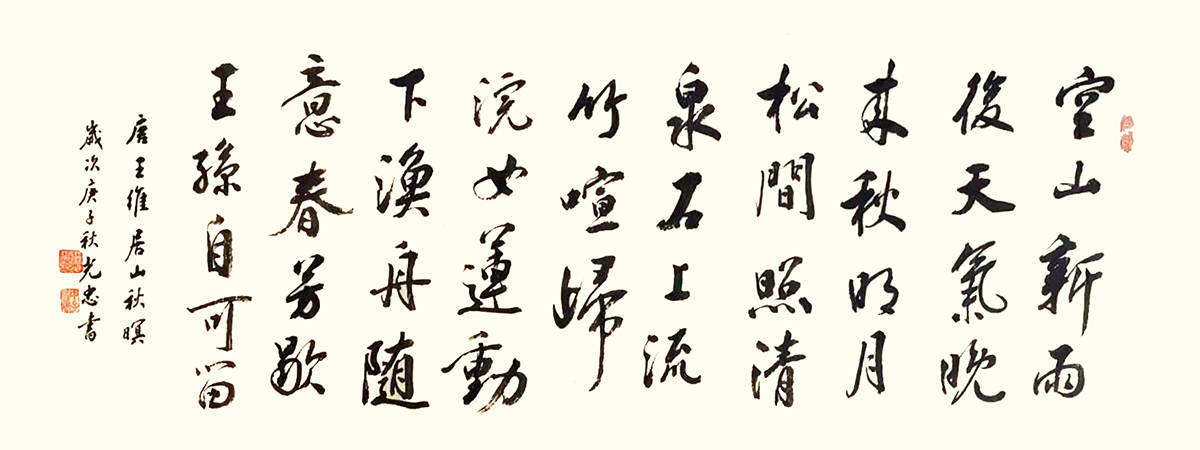 空山新雨
後天氣晚
来秋明月
松間照清
泉石上流
竹喧歸
浣女蓮動
下漁舟随
意春芳歇
王孫自可留
唐王維居山秋暝
歲次庚子秋光忠書